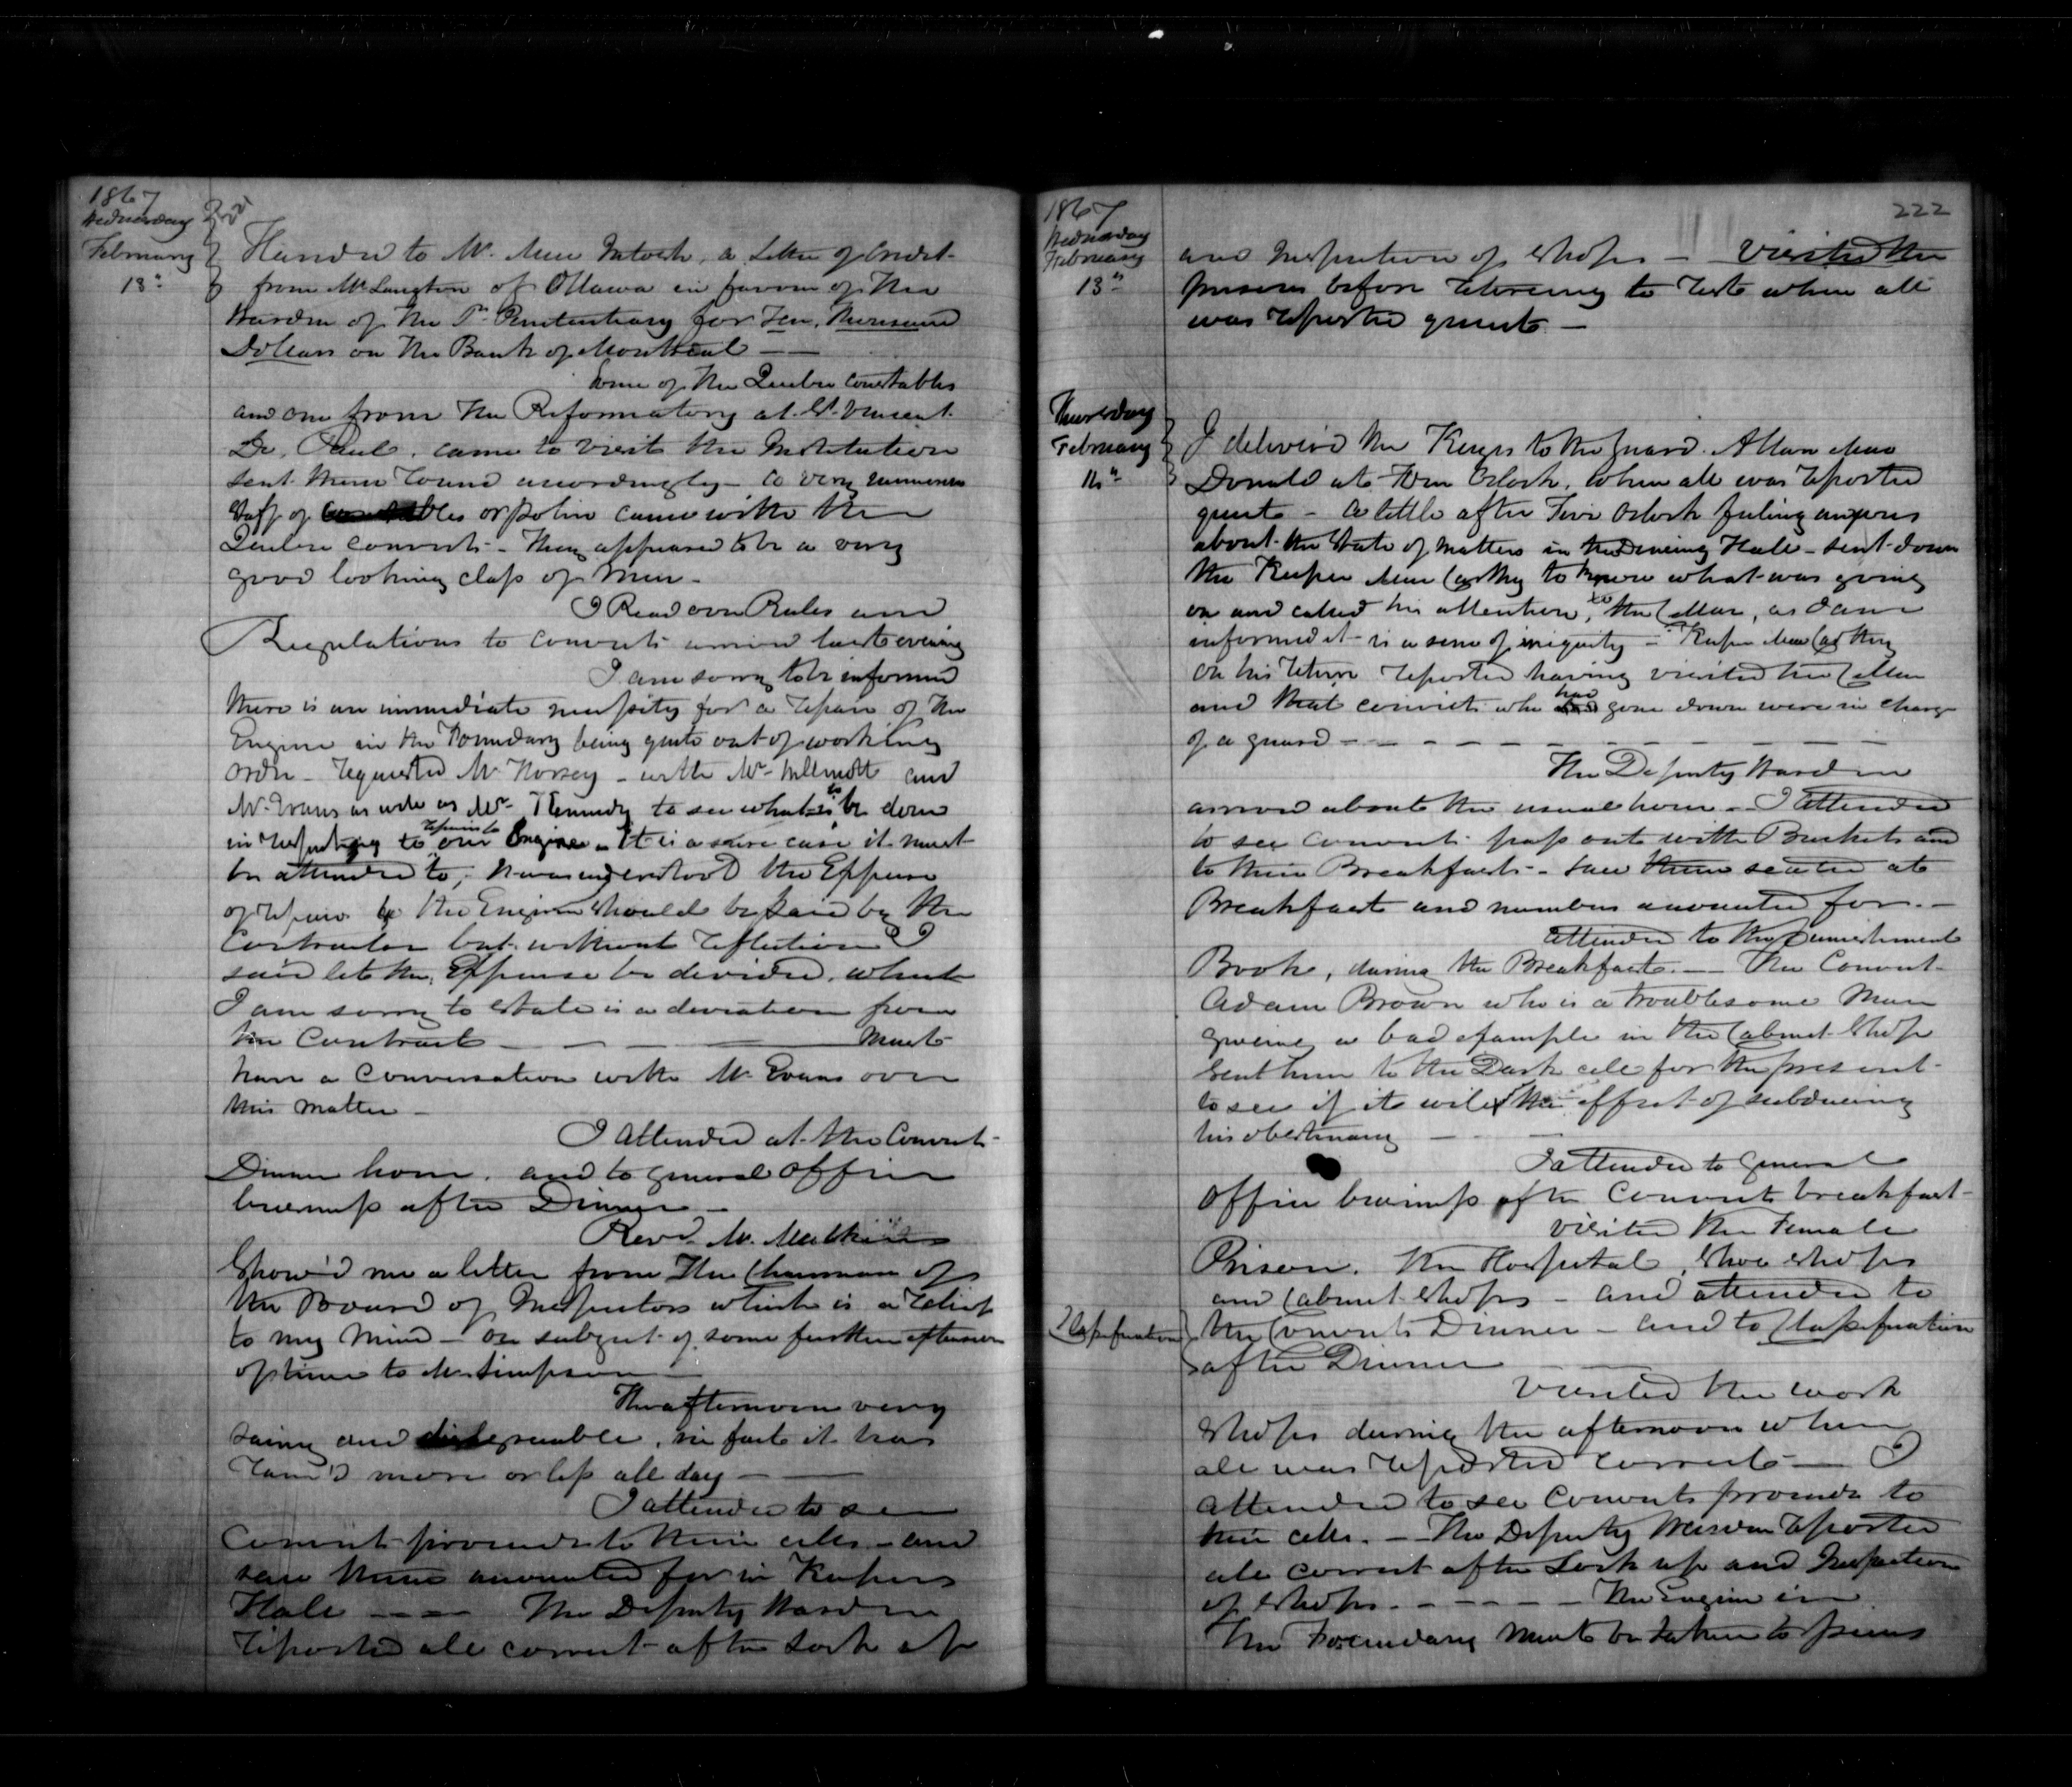 1867
Wednesday
February
13th
Handed to Mr. Mac Intosh, a Letter of Credit
from Mr Langton of Ottawa in favour of the
Warden of the Pl Penitentiary for Ten, Thousand
Dollars on the Bank of Montreal —
Some of the Quebec Constables
and one from the Reformatory at St. Vincent
De, Paul, came to visit the Institution
sent them round accordingly - a very numerous
staff of Constables or police came with the
Quebec Convicts - they appeared to be a very
good looking class of men -
I Read over Rules and
Regulations to convicts arrived last evening
I am sorry to be informed
there is an immediate necessity for a repair of the
Engine in the Foundary being quite out of working
order - requested Mr Horsey - with Mr and
Mr. Evans as well as Mr. Kennedy to see what is to be done
in respecting to repairs to our Engine - it is a case it must
be attended to, it was understood the Expense
of repairs to the Engine should be paid by the
Contractor but without reflection I
said let the, Expense be divided, which
I am sorry to state is a deviation from
the Contract — — — Must
have a Conversation with Mr Evans over
this matter -
I attended at the Convict
Dinner hour, and to general office
business after Dinner -
Revd. Mr. Mulkins
show'd me a letter from The Chairman of
the Board of Inspectors which is a relief
to my mind - on subject of some further extension
of time to Mr Simpson -
The afternoon very
rainy and disagreeable, in fact it has
rain'd more or less all day —
I attended to see
Convicts proceed to their cells - and
saw them accounted for in Keepers
Hall — — The Deputy Warden
reported all correct after Lock up
1867
Wednesday
February
13th
222
and Inspection of shops - visited the
prison before retireing to rest when all
was reported quiet -
Thursday
February
14th
I deliver'd the Keys to the guard Allan Mac
Donald at o'clock, when all was reported
quiet - a little after Five o'clock feeling anxious
about the state of matters in the Dineing Hall - sent down
the Keeper Mac Carthy to know what was going
on and called his attention, to the Cellar, as I am
informed it is a scene of iniquity - Keeper Mac Carthy
on his return reported having visited the Cellar
and that convicts who had gone down were in charge
of a guard - - - - - - -
The Deputy Warden
arrived about the usual hour - I attended
to see convicts pass out with Buckets and
to their Breakfasts - saw them seated at
Breakfast and numbers accounted for. -
attended to the punishment
Book, during the Breakfast. — The Convict
Adam Brown who is a troublesome Man
giveing a bad example in the Cabinet Shop
sent him to the Dark cell for the present
to see if it will the effect of subdueing
his obstinancy — —
I attended to general
office business after Convicts breakfast -
visited the Female
Prison, the Hospital, shoe shops
and Cabinet shops - and attended to
Classification
the Convicts Dinner - and to Classification
after Dinner — —
Visited the work
shops during the afternoon when
all was reported correct — I
attended to see Convicts proceed to
their cells. - The Deputy Warden reported
all correct after Lock up and Inspection
of shops. - - - - - The Engine in
the Foundary must be taken to pieces